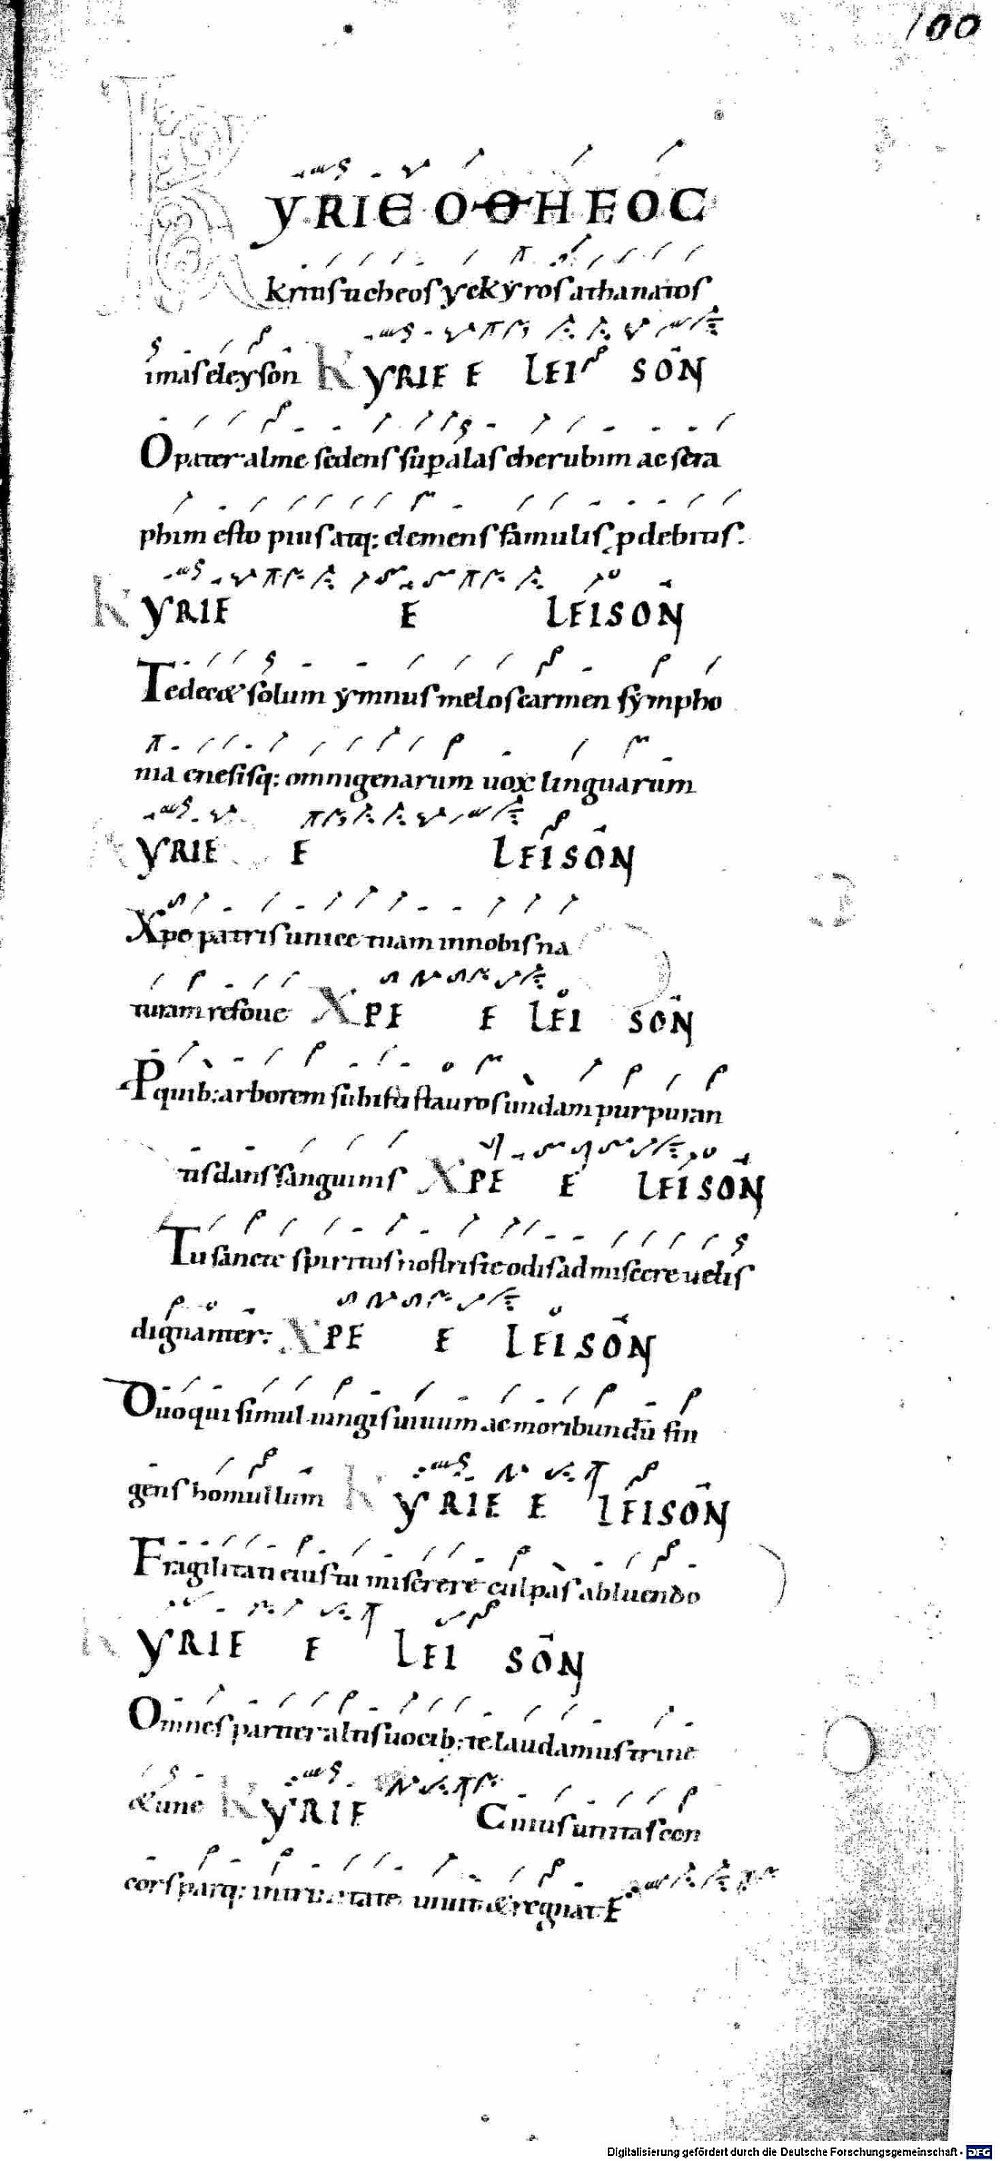 100
KYRIE OΘHEOC
kritis ucheos yek kyros athanatos
imas eleyson KYRIE E LEI SON
O pater alme sedens sup alas cherubim ac sera
phim esto pius atq: clemens famulis pdebitus.
KYRIE E LEISON
Te decet solum ymnus melos carmen sympho
nia enesisq: omnigenarum uox linguarum
KYRIE E LEISON
Xpe patris unice tuam in nobis na
turam refoue XPE E LEI SON
P quib: arborem subisti stauros undam purpuran
tis dans sanguinis XPE E LEISON
Tu sancte spiritus nostris te odis ad miscere uelis
dignanter: XPE E LEISON
Duo qui simul iungis uiuum ac moribundū fin
gens homullum KYRIE E LEISON
Fragilitati eius tu miserere culpas abluendo
KYRIE E LEI SON
Omnes pariter altis uocib: te laudamus trine
&une KYRIE Cuius unitas con
cors parq: in tate uiuit & regnat E
Digitalisierung gefördert durch die Deutsche Forschungsgemeinschaft - DFG